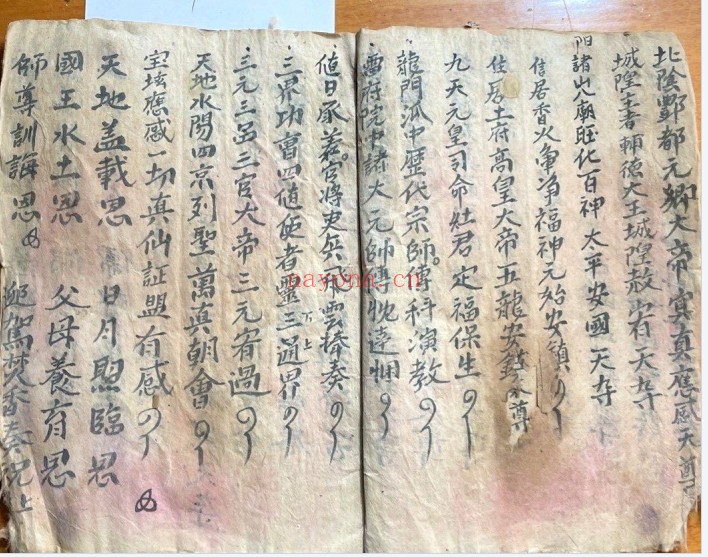 北陰酆都元卿大帝冥真應感天尊
城隍王者輔德大王城隍赦宥天尊
阳諸山廟旺化百神太平安國天尊
住居香火每爭福神元始安鎮
住居土府高皇大帝五龍安鎮天尊
九天元皇司命灶君定福保生
龍門派中歷代宗師傳科演教
雷府院中諸大元帥
值日承差官將吏兵飛雲捧奏
三界功曹四値使者盟三下上通界
三元三品三官大帝三元宥過
天地水陽四京列聖萬真朝會
宝坛應感一切真仙証盟有感
天地盖載恩 日月照臨恩
國王水土恩 父母養育恩
師尊訓誨恩 鸞駕焚香奏 上
nayona.cn